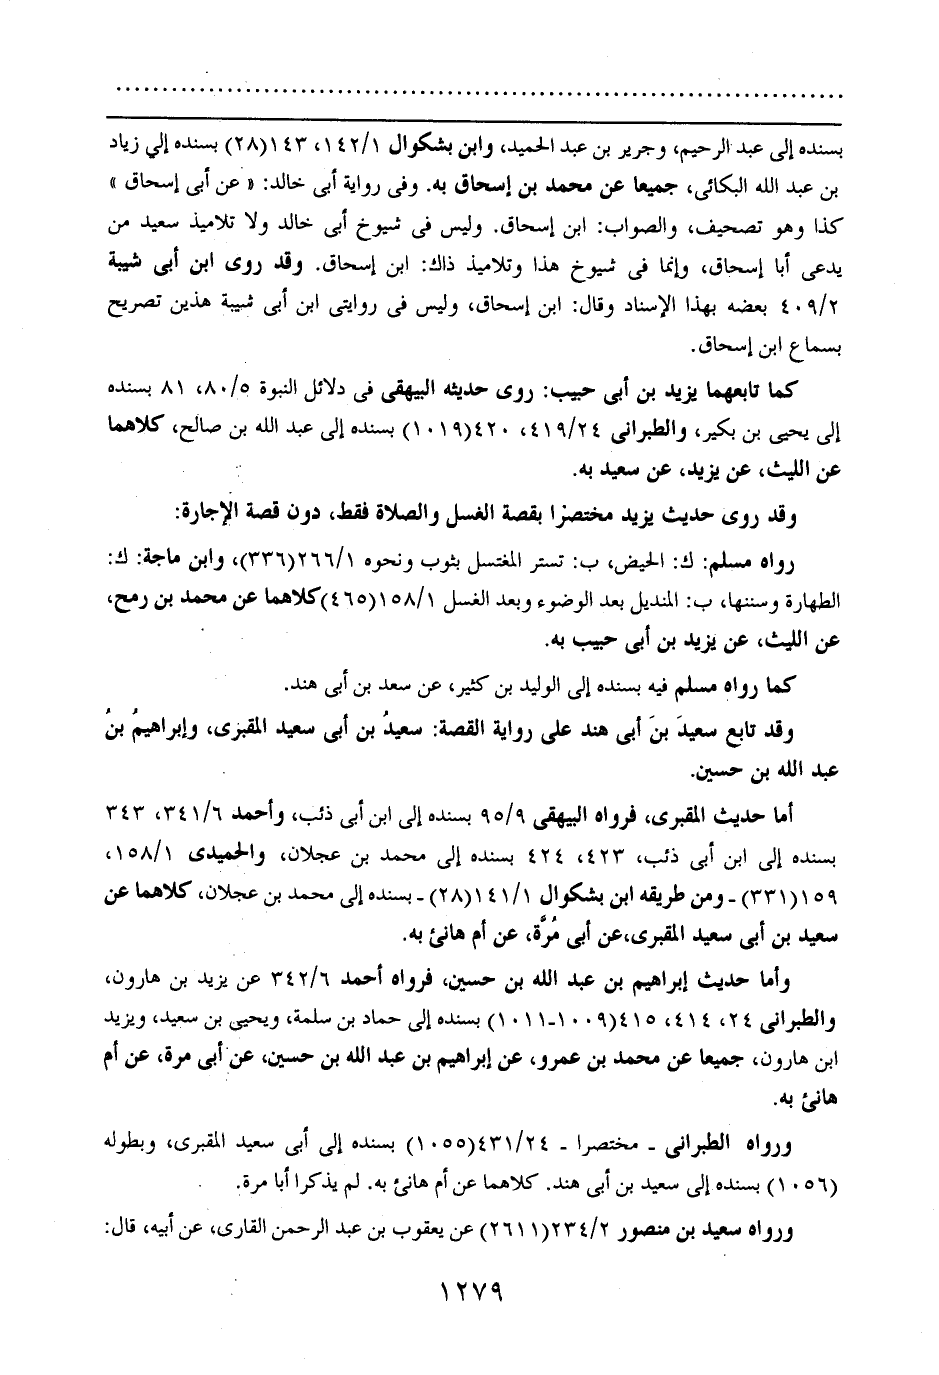 بسنده إلى عبد الرحيم، وجرير بن عبد الحميد، وابن بشكوال ١٤٢/١، ١٤٣(٢٨) بسنده إلي زياد
بن عبد الله البكائى، جميعا عن محمد بن إسحاق به. وفى رواية أبى خالد: « عن أبى إسحاق »
كذا وهو تصحيف، والصواب: ابن إسحاق. وليس فى شيوخ أبى خالد ولا تلاميذ سعيد من
يدعى أبا إسحاق، وإنما فى شيوخ هذا وتلاميذ ذاك: ابن إسحاق. وقد روى ابن أبى شيبة
٤٠٩/٢ بعضه بهذا الإسناد وقال: ابن إسحاق، وليس فى روايتى ابن أبى شيبة هذين تصريح
بسماع ابن إسحاق.
كما تابعهما يزيد بن أبى حبيب: روى حديثه البيهقى فى دلائل النبوة ٨٠/٥، ٨١ بسنده
إلى يحيى بن بكير، والطبرانى ٤١٩/٢٤، ٤٢٠(١٠١٩) بسنده إلى عبد الله بن صالح، كلاهما
عن الليث، عن يزيد، عن سعيد به.
وقد روى حديث يزيد مختصرًا بقصة الغسل والصلاة فقط، دون قصة الإجارة:
رواه مسلم: ك: الحيض، ب: تستر المغتسل بثوب ونحوه ٢٦٦/١(٣٣٦)، وابن ماجة: ك:
الطهارة وسننها، ب: المنديل بعد الوضوء وبعد الغسل ١٥٨/١(٤٦٥)كلاهما عن محمد بن رمح،
عن الليث، عن يزيد بن أبى حبيب به.
كما رواه مسلم فيه بسنده إلى الوليد بن كثير، عن سعد بن أبى هند.
وقد تابع سعيدَ بنَ أبى هند على رواية القصة: سعيدُ بن أبى سعيد المقبرى، وإبراهيمُ بنُ
عبد الله بن حسين.
أما حديث المقبرى، فرواه البيهقى ٩٥/٩ بسنده إلى ابن أبى ذئب، وأحمد ٣٤١/٦، ٣٤٣
بسنده إلى ابن أبى ذئب، ٤٢٣، ٤٢٤ بسنده إلى محمد بن عجلان، والحميدى ١٥٨/١،
١٥٩(٣٣١) ـ ومن طريقه ابن بشكوال ١٤١/١(٢٨) ـ بسنده إلى محمد بن عجلان، كلاهما عن
سعيد بن أبى سعيد المقبرى،عن أبى مُرَّة، عن أم هانئ به.
وأما حديث إبراهيم بن عبد الله بن حسين، فرواه أحمد ٣٤٢/٦ عن يزيد بن هارون،
والطبرانى ٢٤، ٤١٤، ٤١٥(١٠٠٩ـ١٠١١) بسنده إلى حماد بن سلمة، ويحيى بن سعيد، ويزيد
ابن هارون، جميعا عن محمد بن عمرو، عن إبراهيم بن عبد الله بن حسين، عن أبى مرة، عن أم
هانئ به.
ورواه الطبرانى ـ مختصرا ـ ٤٣١/٢٤(١٠٥٥) بسنده إلى أبى سعيد المقبرى، وبطوله
(١٠٥٦) بسنده إلى سعيد بن أبى هند. كلاهما عن أم هانئ به. لم يذكرا أبا مرة.
ورواه سعيد بن منصور ٢٣٤/٢(٢٦١١) عن يعقوب بن عبد الرحمن القارى، عن أبيه، قال:
١٢٧٩